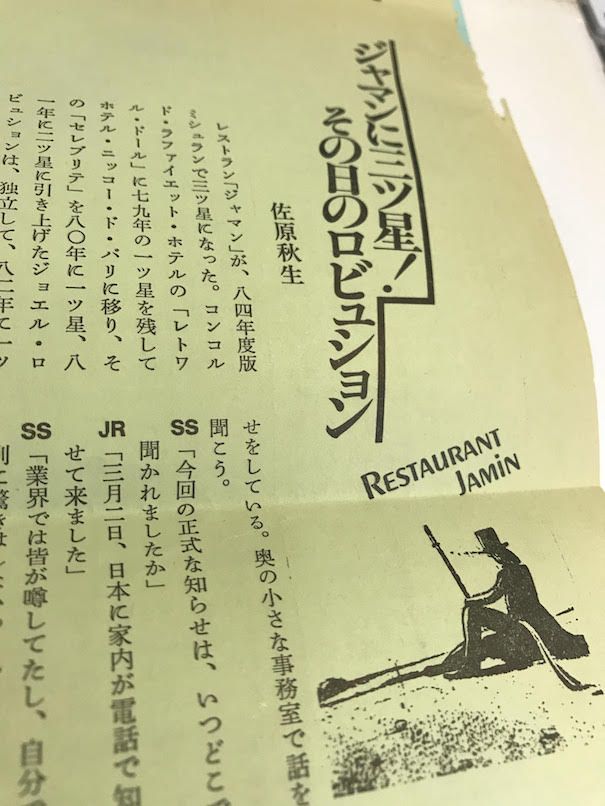 ジャマンに三ツ星！
その日のロビュション
佐原秋生
レストラン「ジャマン」が、八四年度版
ミシュランで三ツ星になった。コンコル
ド・ラファイエット・ホテルの「レトワ
ル・ドール」に七九年の一ツ星を残して
ホテル・ニッコー・ド・パリに移り、そ
の「セレブリテ」を八〇年に一ツ星、八
一年に二ツ星に引き上げたジョエル・ロ
ビュションは、独立して、八二年に一ツ
RESTAURANT
JAMIN
せをしている。奥の小さな事務室で話を
聞こう。
SS「今回の正式な知らせは、いつどこで
聞かれましたか」
JR「三月二日、日本に家内が電話で知
せて来ました」
SS「業界では皆が噂してたし、自分で